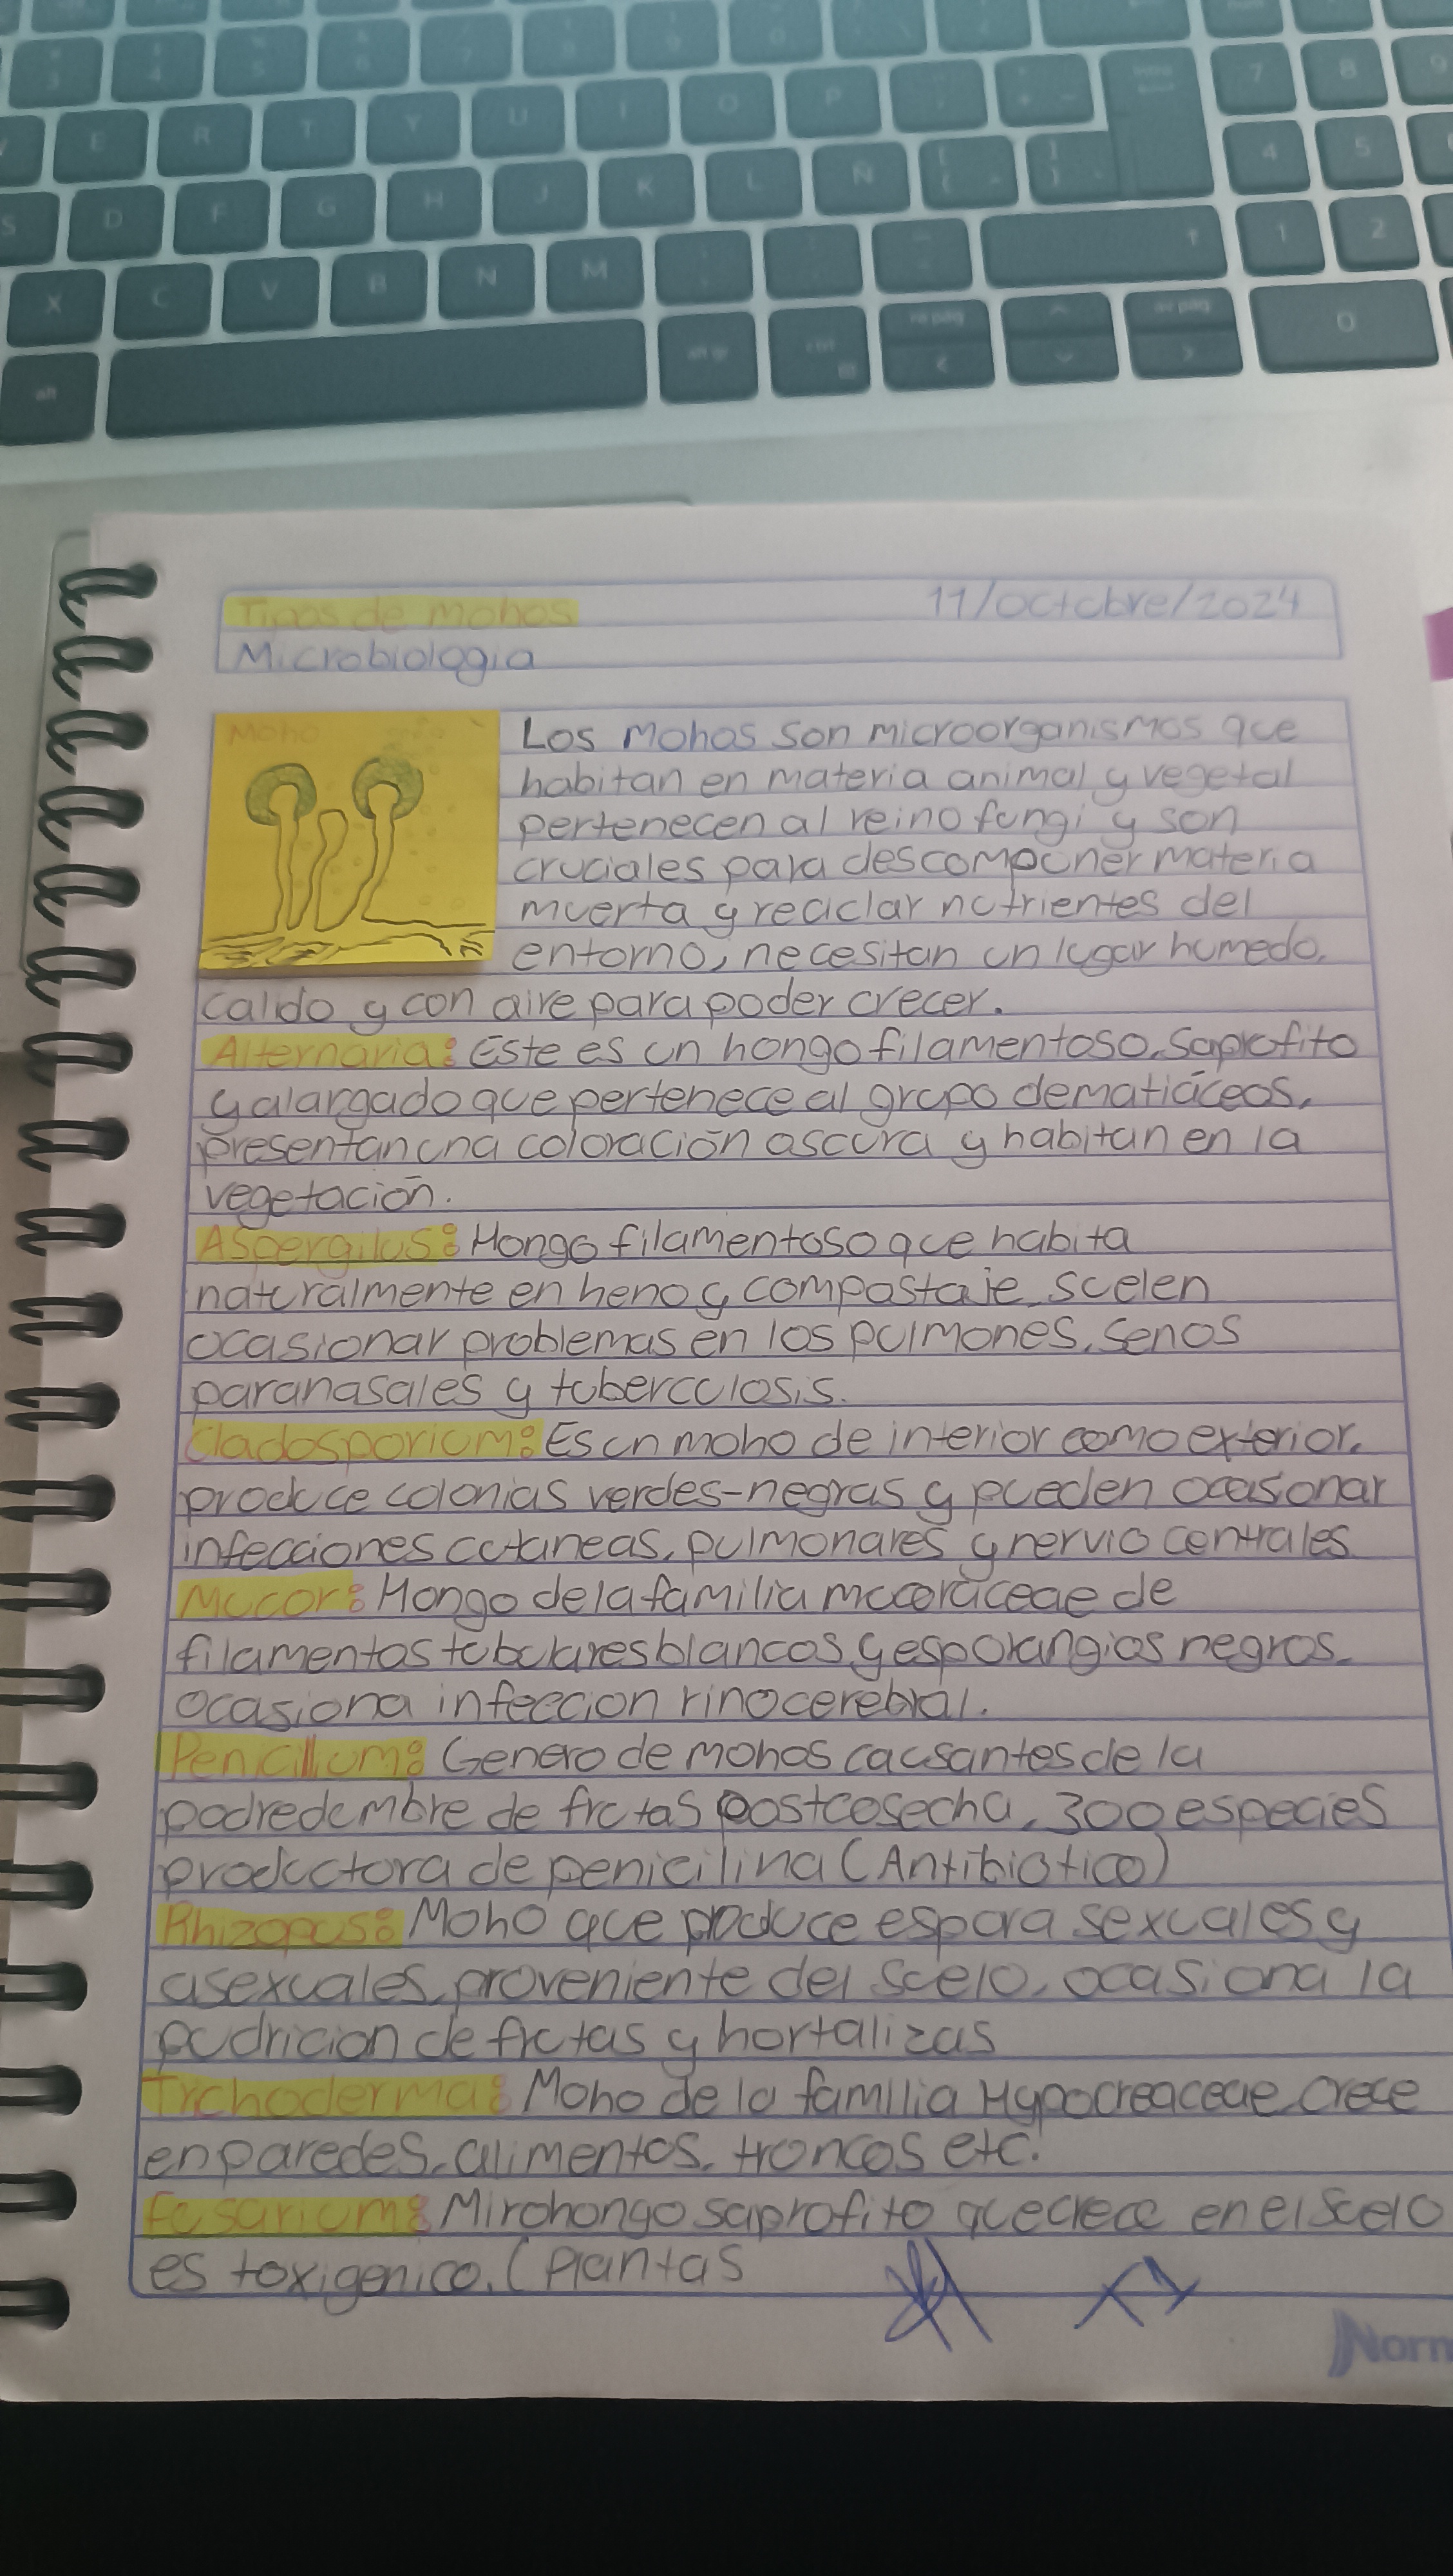 E R T Y U I O P 7 8 9
S D F G H J K L Ñ 4 5
X C V B N M 1 2
alt alt gr ctrl re pág av pág 0
Tipos de mohos 11/octubre/2024
Microbiologia
Moho
Los Mohos son microorganismos que
habitan en materia animal y vegetal
pertenecen al reino fungi y son
cruciales para descomponer materia
muerta y reciclar nutrientes del
entorno, necesitan un lugar humedo,
calido y con aire para poder crecer.
Alternaria: Este es un hongo filamentoso, saprofito
y alargado que pertenece al grupo dematiáceos,
presentan una coloración oscura y habitan en la
vegetación.
Aspergilus: Hongo filamentoso que habita
naturalmente en heno y compostaje, suelen
ocasionar problemas en los pulmones, senos
paranasales y tuberculosis.
Cladosporium: Es un moho de interior como exterior,
produce colonias verdes-negras y pueden ocasionar
infecciones cutaneas, pulmonares y nervio centrales
Mucor: Hongo de la familia mucoráceae de
filamentos tubulares blancos y esporangios negros,
ocasiona infeccion rinocerebral.
Penicillium: Genero de mohos causantes de la
podredumbre de frutas postcosecha, 300 especies
productora de penicilina (Antibiotico)
Rhizopus: Moho que produce espora sexuales y
asexuales, proveniente del suelo, ocasiona la
pudricion de frutas y hortalizas
Trchoderma: Moho de la familia Hypocreaceae, crece
en paredes, alimentos, troncos etc.
Fusarium: Mirohongo saprofito que crece en el suelo
es toxigenico. (Plantas
Norm